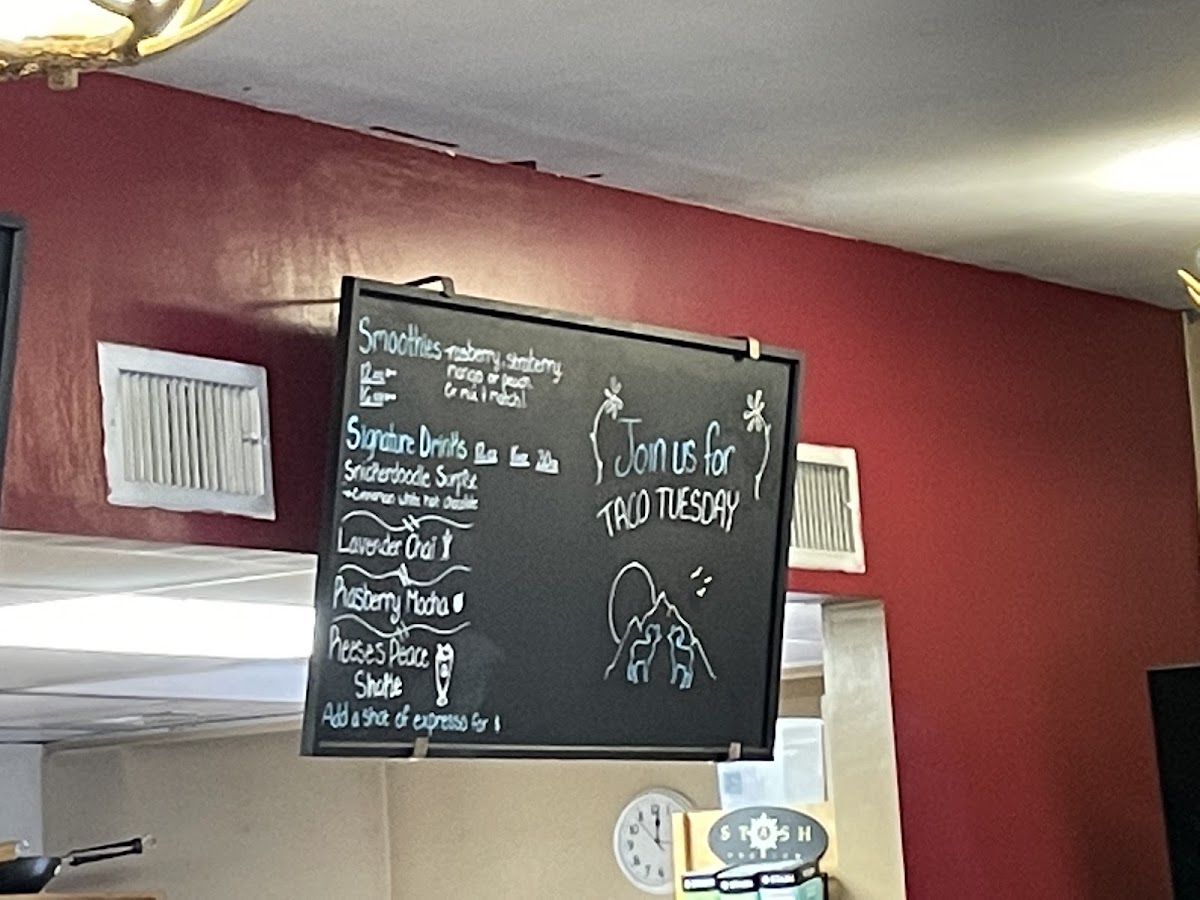 Smoothies - rasberry, strawberry,
mango or peach
Or mix & match!
12oz
16oz
Signature Drinks 12oz 16oz 20oz
Snickerdoodle Surprise
Cinnamon white hot chocolate
Lavender Chai
Rasberry Mocha
Reeses Peace
Shake
Add a shot of expresso for $
Join us for
TACO TUESDAY
STASH